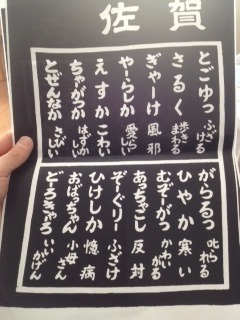 佐賀
とごゆっ ふざける
さるく 歩きまわる
ぎゃーけ 風邪
やーらしか 愛らしい
えすか こわい
ちゃーがつか はずかしい
とぜんなか さびしい
がらるっ 叱られる
ひやか 寒い
むぞーがっ かわいがる
あっちゃこし 反対
ぞーぐりー ふざけ
ひけしか 憶病
おばっちゃん 小母さん
どうきゃろ いいかげん